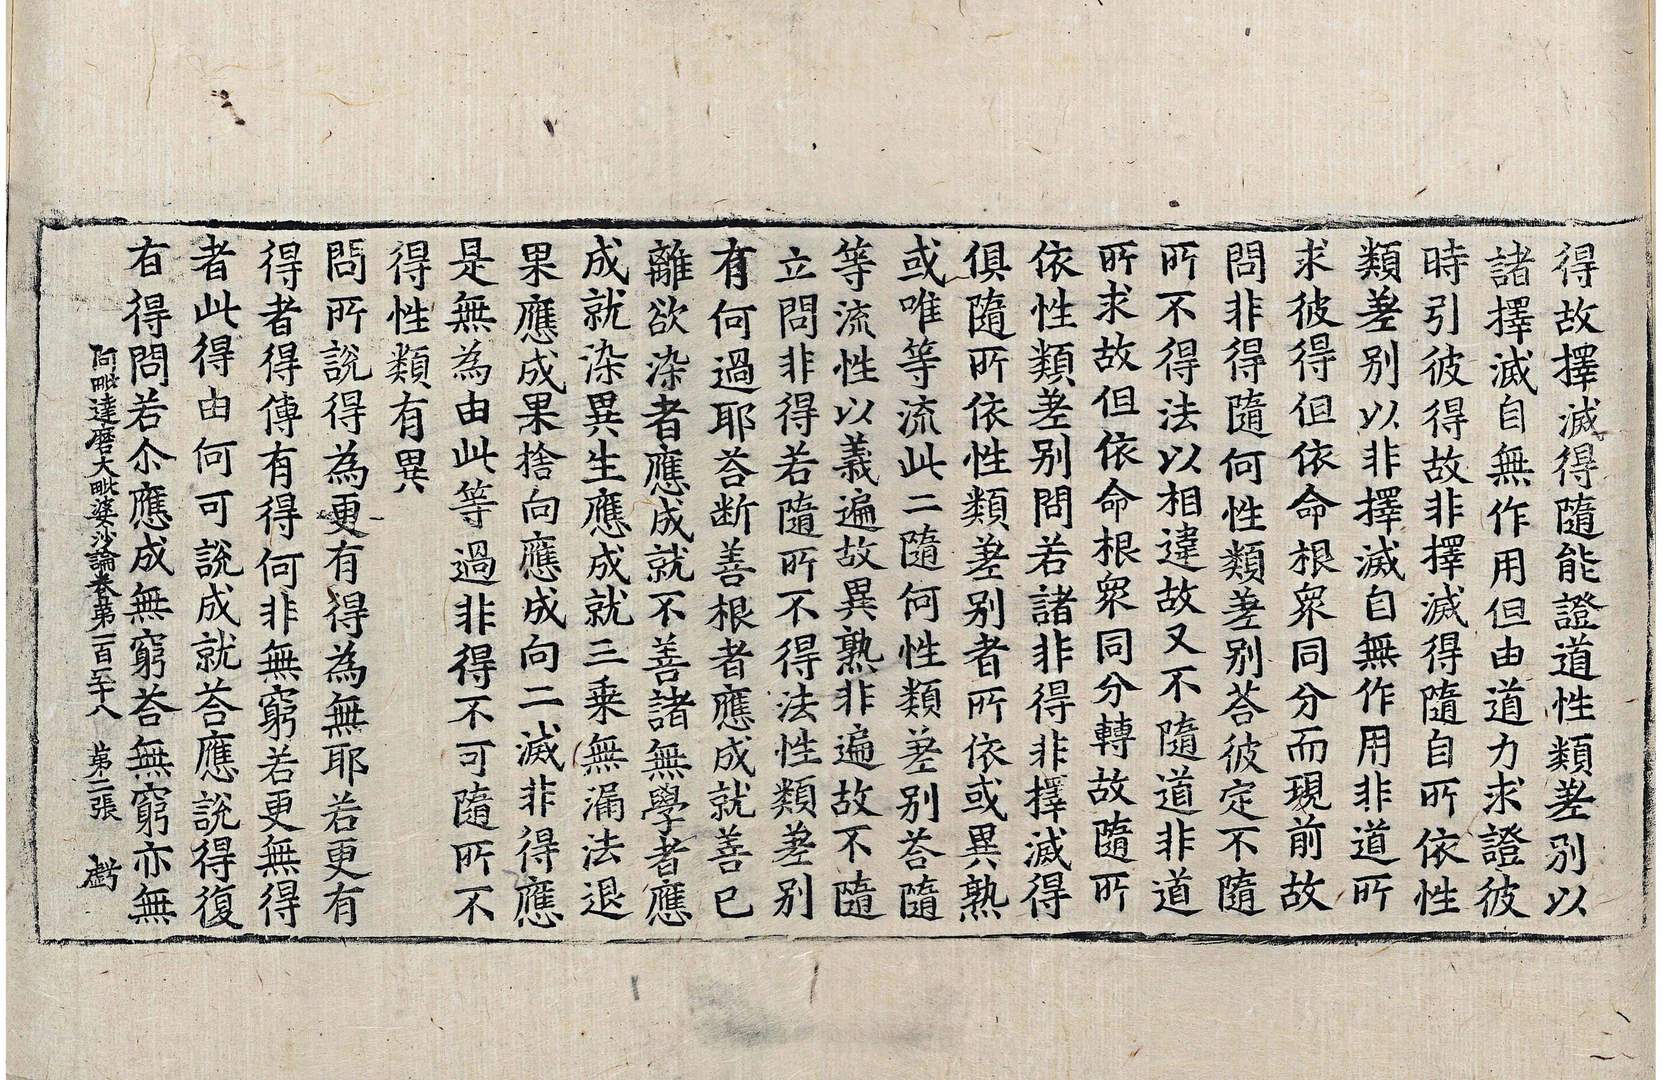 得故擇滅得隨能證道性類差別以
諸擇滅自無作用但由道力求證彼
時引彼得故非擇滅得隨自所依性
類差別以非擇滅自無作用非道所
求彼得但依命根衆同分而現前故
問非得隨何性類差別荅彼定不隨
所不得法以相違故又不隨道非道
所求故但依命根衆同分轉故隨所
依性類差別問若諸非得非擇滅得
俱隨所依性類差別者所依或異熟
或唯等流此二隨何性類差別荅隨
等流性以義遍故異熟非遍故不隨
立問非得若隨所不得法性類差別
有何過耶荅断善根者應成就善已
離欲染者應成就不善諸無學者應
成就染異生應成就三乘無漏法退
果應成果捨向應成向二滅非得應
是無為由此等過非得不可隨所不
得性類有異
問所說得為更有得為無耶若更有
得者得傳有得得何非無窮若更無得
者此得由何可說成就荅應說得復
有得問若尒應成無窮荅無窮亦無
阿毗達磨大毗婆沙論卷第一百五十八　第二張